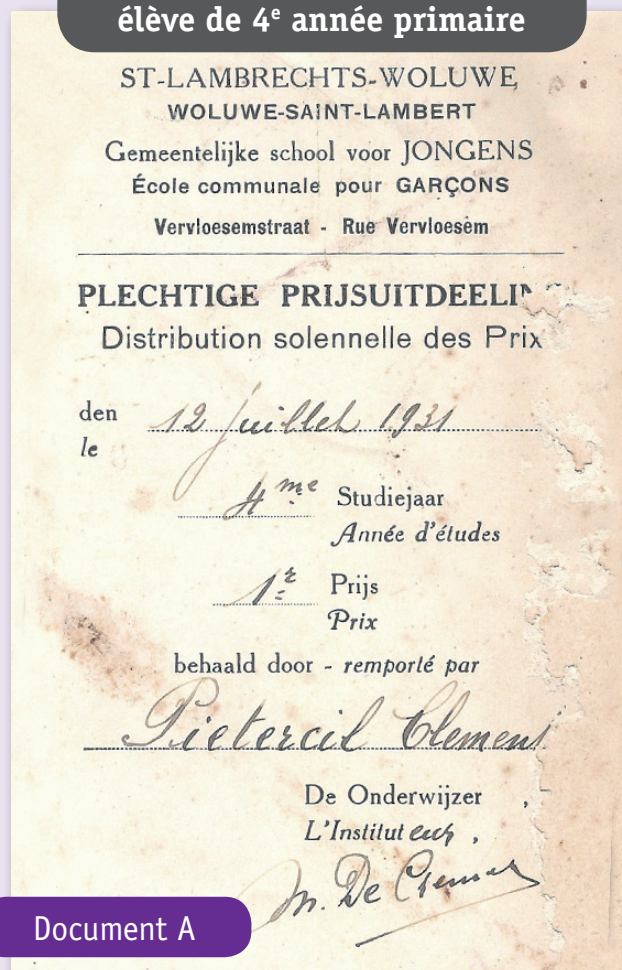 élève de 4e année primaire
ST-LAMBRECHTS-WOLUWE
WOLUWE-SAINT-LAMBERT
Gemeentelijke school voor JONGENS
École communale pour GARÇONS
Vervloesemstraat - Rue Vervloesem
PLECHTIGE PRIJSUITDEELIN
Distribution solennelle des Prix
den
le 12 juillet 1931
4me Studiejaar
Année d'études
1r Prijs
Prix
behaald door - remporté par
Pietercil Clement
De Onderwijzer ,
L'Instituteur ,
M. De
Document A